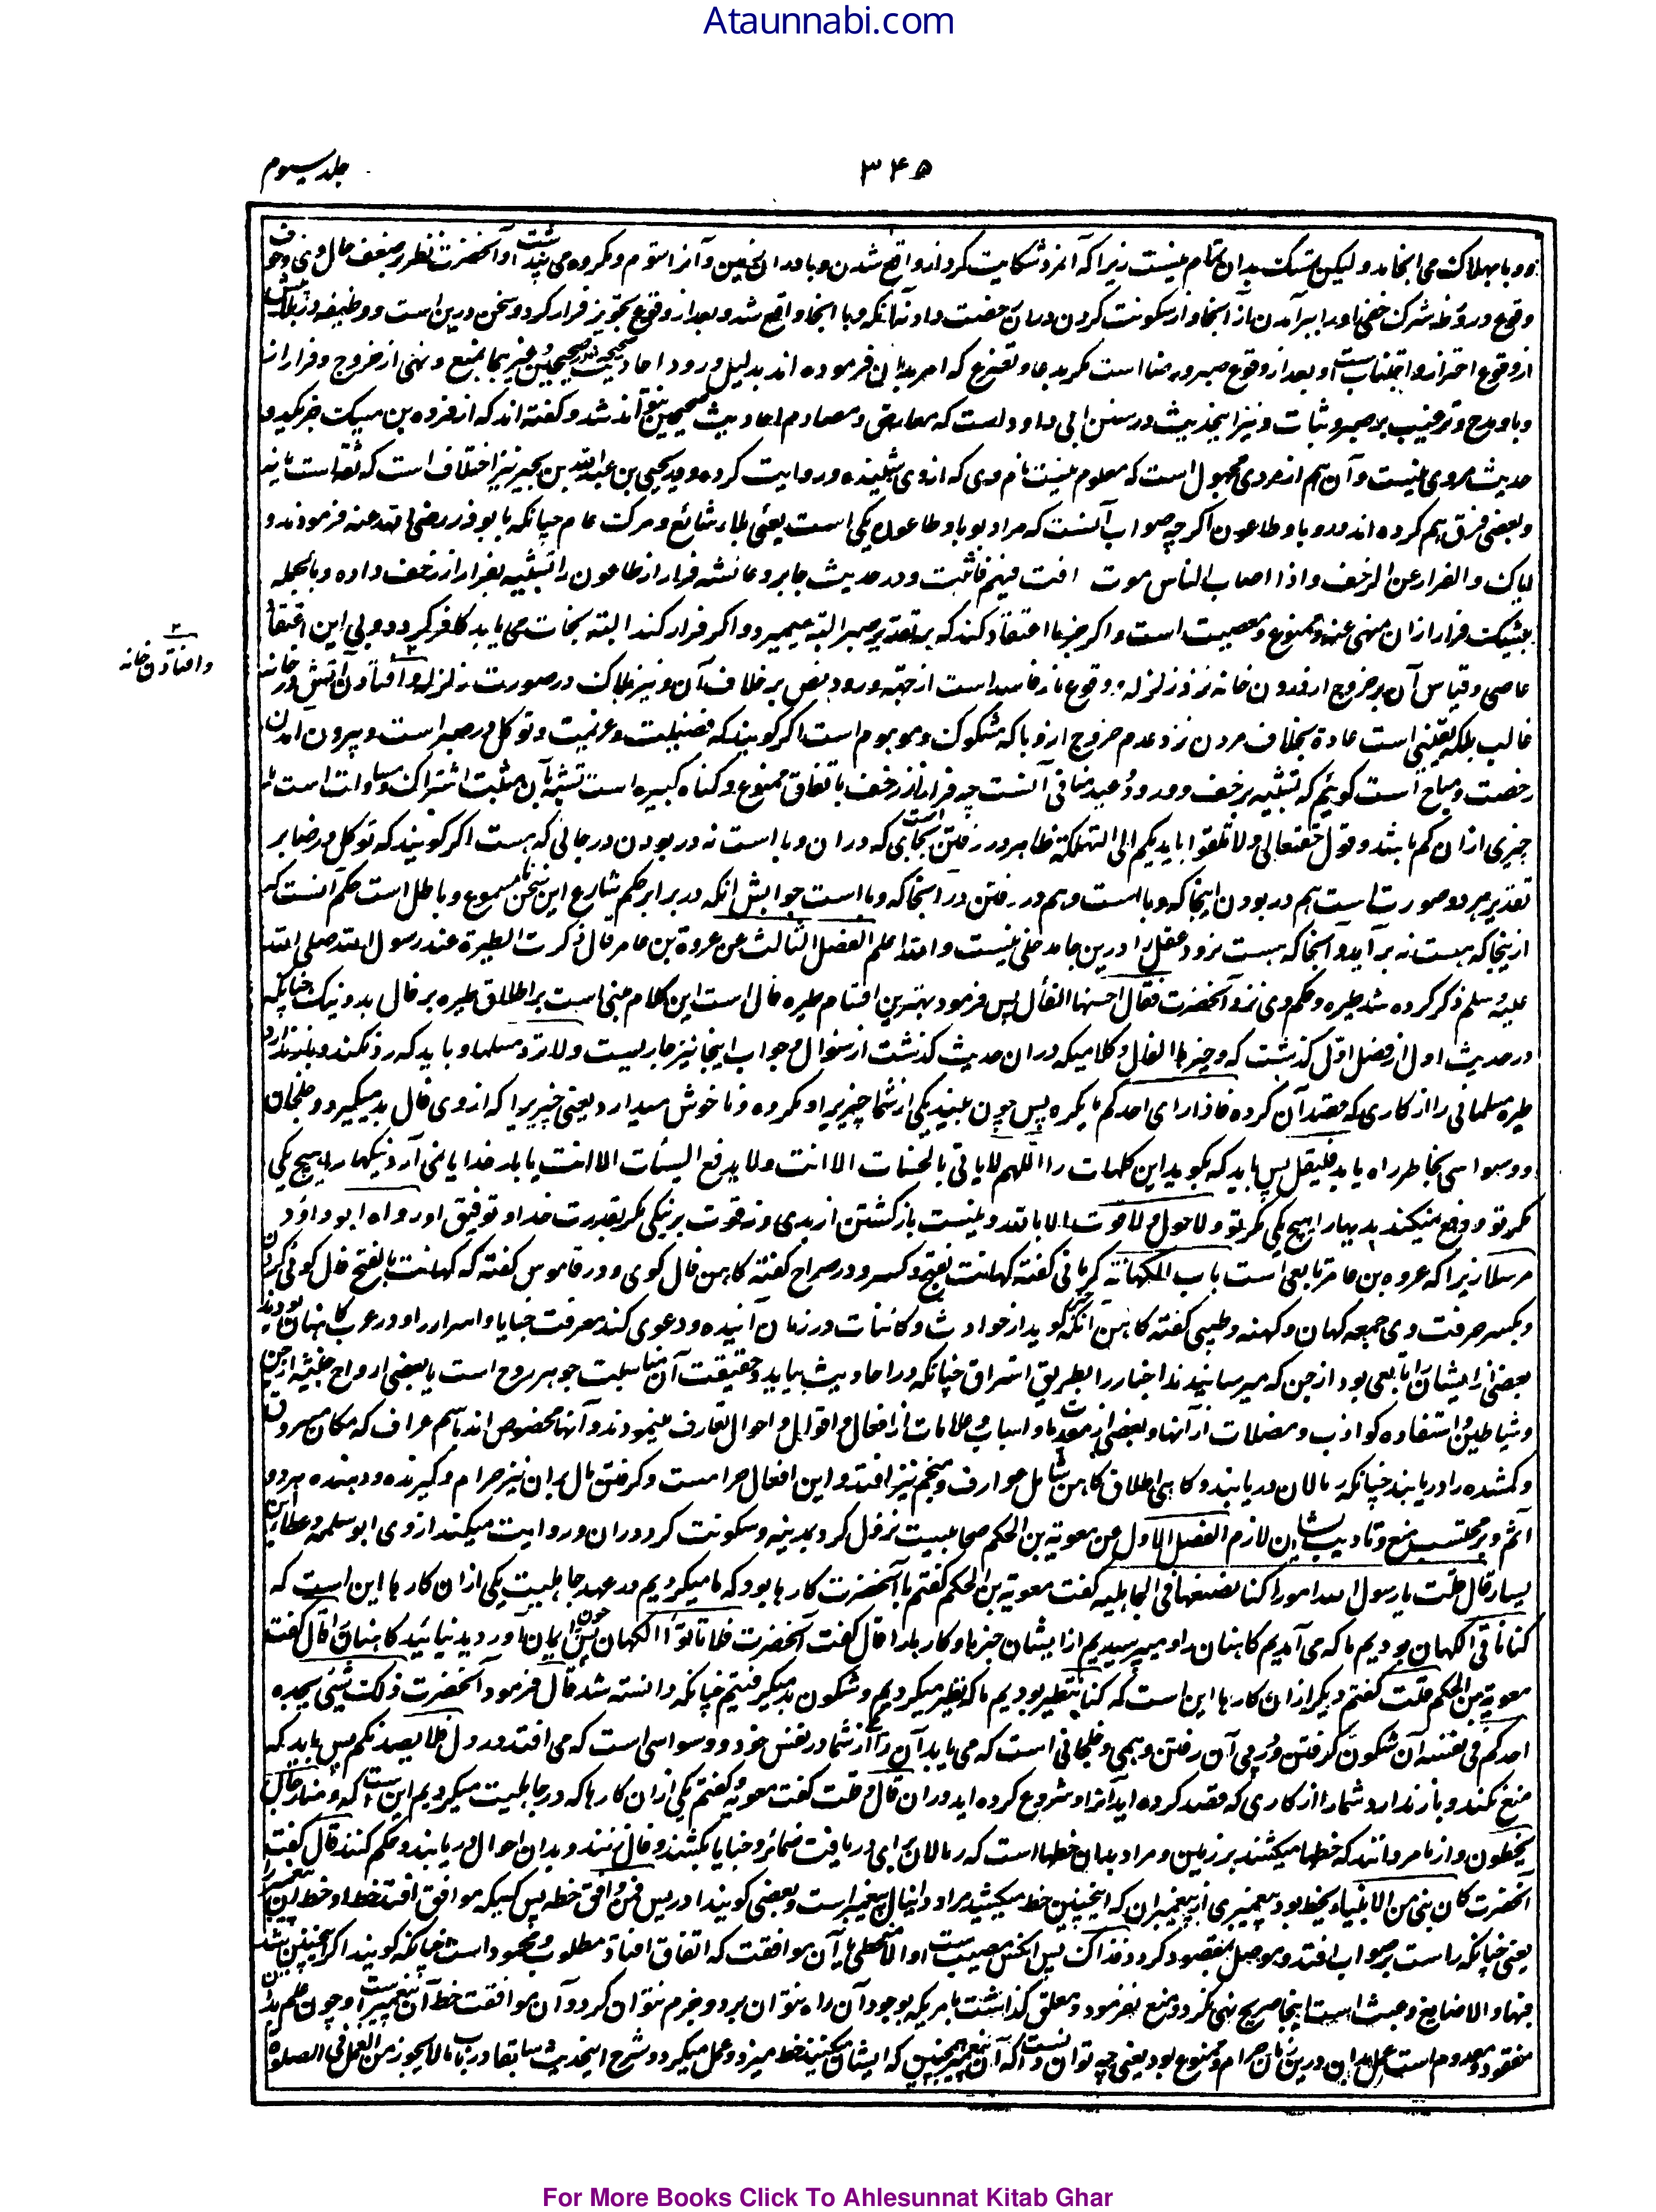 Ataunnabi.com
۳۴۵
جلد سیوم
و وبا بهلاکت می انجامد و لیکن تمسک بدان تمام نیست زیرا که آنمرد شکایت کرد از واقع شدن وبا در ان زمین و آنرا شوم و مکروه می پنداشت و آنحضرت نظر بر ضعف حال وی و خوف
وقوع در ورطه شرک خفی او را ببر آمدن از آنجا و از سکونت کردن در ان رخصت داد نه آنکه وبا انجا واقع شد و بعد از وقوع تجویز فرار کرد و سخن درین است و وظیفه در بلا پیش
از وقوع احتراز و اجتناب است و بعد از وقوع صبر و رضا است مگر بدعا و تضرع که امر بدان فرموده اند بدلیل ورود احادیث صحیحه در صحیحین و غیرهما بمنع و نهی از خروج و فرار از
وبا و مدح و ترغیب بر صبر و ثبات و نیز این حدیث در سنن ابی داود است که معارض و مصادم احادیث صحیحین نتواند شد و گفته اند که از فروه بن مسیک جز یکدو
حدیث مروی نیست و آن هم از مردی مجهول است که معلوم نیست نام وی که از وی شنیده و روایت کرده و در یحیی بن عبدالله بن بحیر نیز اختلاف است که ثقه است یا نه
و بعضی فرق هم کرده اند در وبا و طاعون اگر چه صواب آنست که مراد بوبا و طاعون یکی است یعنی بلاء شائع و مرگ عام چنانکه بابوذر رضی الله عنه فرمودند و
ایاک و الفرار عن الزحف و اذا اصاب الناس موت انت فیهم فاثبت و در حدیث جابر و عائشه فرار از طاعون را تشبیه بفرار از زحف داده و بالجمله
بیشک فرار ازان منهی عنه و ممنوع و معصیت است و اگر جزما اعتقاد کند که بر تقدیر صبر البته میمیرد و اگر فرار کند البته نجات می یابد کافر گردد و بی این اعتقاد
عاصی و قیاس آن بر خروج از درون خانه نزد زلزله و وقوع نار فاسد است از جهة ورود نص بر خلاف آن و نیز هلاک در صورت زلزله و افتادن آتش در خانه
و افتادن خانه
غالب بلکه یقینی است عادة بخلاف مردن نزد عدم خروج از وبا که مشکوک و موهوم است اگر گویند که فضیلت و عزیمت و توکل در صبر است و بیرون آمدن
رخصت و مباح است گوئیم که تشبیه بزحف و ورود وعید منافی آنست چه فرار از زحف باتفاق ممنوع و گناه کبیره است تشبیه بآن مثبت اشتراک و مساوات است یا
چیزی ازان کم باشد و قول حقتعالی و لا تلقوا بایدیکم الی التهلکة ظاهر در رفتن است بجای که در ان وبا است نه در بودن در جائی که هست اگر گویند که توکل و رضا بر
تقدیر هر دو صورت است هم در بودن اینجا که وبا است و هم در رفتن در آنجا که وبا است جوابش انکه در برابر حکم شارع این سخن نا مسموع و باطل است حکم آنست که
از ینجا که هست نه بر آید و آنجا که هست نرود عقل را درین جا مدخلی نیست و الله اعلم الفصل الثالث عن عروة بن عامر قال ذکرت الطیرة عند رسول الله صلی الله
علیه وسلم ذکر کرده شد طیره و حکم وی نزد آنحضرت فقال احسنها الفأل پس فرمود بهترین اقسام طیره فال است این کلام مبنی است بر اطلاق طیره بر فال بد و نیک چنانکه
در حدیث اول از فصل اول گذشت که و خیرها الفال و کلامیکه در ان حدیث گذشت از سوال و جواب اینجا نیز جاریست و لا ترد مسلما و باید که رد نکند و باز ندارد
طیره مسلمانی را از کاری که قصد آن کرده فاذا رای احدکم ما یکره پس چون ببیند یکی از شما چیزی را که مکروه و ناخوش میدارد یعنی چیزیرا که از وی فال بد میگیرد و خلجان
و وسواسی بخاطر راه یابد فلیقل پس باید که بگوید این کلمات را اللهم لا یاتی بالحسنات الا انت و لا یدفع السیئات الا انت یا بار خدایا نمی آرد نیکیها را هیچ یکی
مگر تو و دفع نمیکند بدیها را هیچ یکی مگر تو و لا حول و لا قوت الا بالله و نیست باز گشتن از بدی و نه قوت بر نیکی مگر بقدرت خدا و توفیق او رواه ابو داؤد
مرسلا زیرا که عروه بن عامر تابعی است باب الکهانة کرمانی گفته کهانت بفتح و کسر و در صراح گفته کاهن فال گوی و در قاموس گفته که کهانت بالفتح فال گوئی کردن
و بکسر حرفت وی جمعه کهان و کهنه و طیبی گفته کاهن آنکه خبر گوید از حوادث و کائنات در زمان آینده و دعوی کند معرفت خبایا و اسرار را و در عرب کاهنان بودند
بعضی از ایشان را تابعی بود از جن که میرسانیدند اخبار را بطریق استراق چنانکه در احادیث بیاید و حقیقت آن مناسبت جوهر روح است با بعضی ارواح خبیثه از جن
و شیاطین و استفاده کواذب و مضلات از آنها و بعضی از مقدمات و اسباب و علامات از افعال و اقوال و احوال تعارف مینمودند و آنها مخصوص اند باسم عراف که مکان مسروق
و گمشده را دریابند چنانکه رمالان دریابند و گاهی اطلاق کاهن شامل عراف و منجم نیز افتد و این افعال حرام است و گرفتن مال بران نیز حرام و گیرنده و دهنده هر دو
آثم و بر محتسب منع و تادیب ایشان لازم الفصل الاول عن معویة بن الحکم صحابیست نزول کرد بمدینه و سکونت کرد در ان و روایت میکند از وی ابو سلمه و عطاء بن
یسار قال قلت یا رسول الله امورا کنا نصنعها فی الجاهلیه گفت معویة بن الحکم گفتم بآنحضرت کارها بود که ما میکردیم در عهد جاهلیت یکی ازان کارها این است که
کنا ناتی الکهان بودیم ما که می آمدیم کاهنان را و میپرسیدیم از ایشان خبرها و کارها را قال گفت آنحضرت فلا تاتوا الکهان پس چون ایمان آوردید نیائید کاهنان را قال گفت
معویة بن الحکم قلت گفتم دیگر ازان کارها این است که کنا نتطیر بودیم ما که تطیر میکردیم و شگون بد میگرفتیم چنانکه دانسته شد قال فرمود آنحضرت ذلک شئی یجده
احدکم فی نفسه آن شگون گرفتن و در پی آن رفتن وهمی و خلجانی است که می یابد آن را یکی از شما در نفس خود و وسواسی است که می افتد در دل فلا یصدنکم پس باید که
منع نکند و باز ندارد شما را از کاری که قصد کرده اید آنرا و شروع کرده اید در ان قال قلت گفت معویه گفتم یکی ازان کارها که در جاهلیت میکردیم این است که و منا رجال
یخطون و از ما مردانند که خطها میکشند بر زمین و مراد بدان خطها است که رمالان برای دریافت ضمائر و خبایا بکشند و فال زنند و بدان احوال دریابند و حکم کنند قال گفت
آنحضرت کان نبی من الانبیاء یخط بود پیغمبری از پیغمبران که اینچنین خط میکشید مراد دانیال پیغمبر است و بعضی گویند ادریس فمن وافق خطه پس کسیکه موافق افتد خط او خط آن پیغمبر را
یعنی چنانکه راست بر صواب افتد و موصل بمقصود گردد فذاک پس آنکس مصیب است و الا مخطی یا آن موافقت که اتفاق افتاد مطلوب و محمود است چنانکه گویند اگر اینچنین شد
فبها و الا ضایع و عبث است اینجا صریح نهی نکرد و منع نفرمود و معلق گذاشت بامریکه بوجود آن راه نتوان برد و جزم نتوان کرد و آن موافقت خط آن پیغمبر است و چون علم بدان
مفقود و معدوم است عمل بدان درین زمان حرام و ممنوع بود یعنی چه توان دانست که آن پیغمبر همچنین که ایشان میکنند خط میزد و عمل میکرد و شرح این حدیث سابقا در باب ما لا یجوز من العمل فی الصلوة
For More Books Click To Ahlesunnat Kitab Ghar